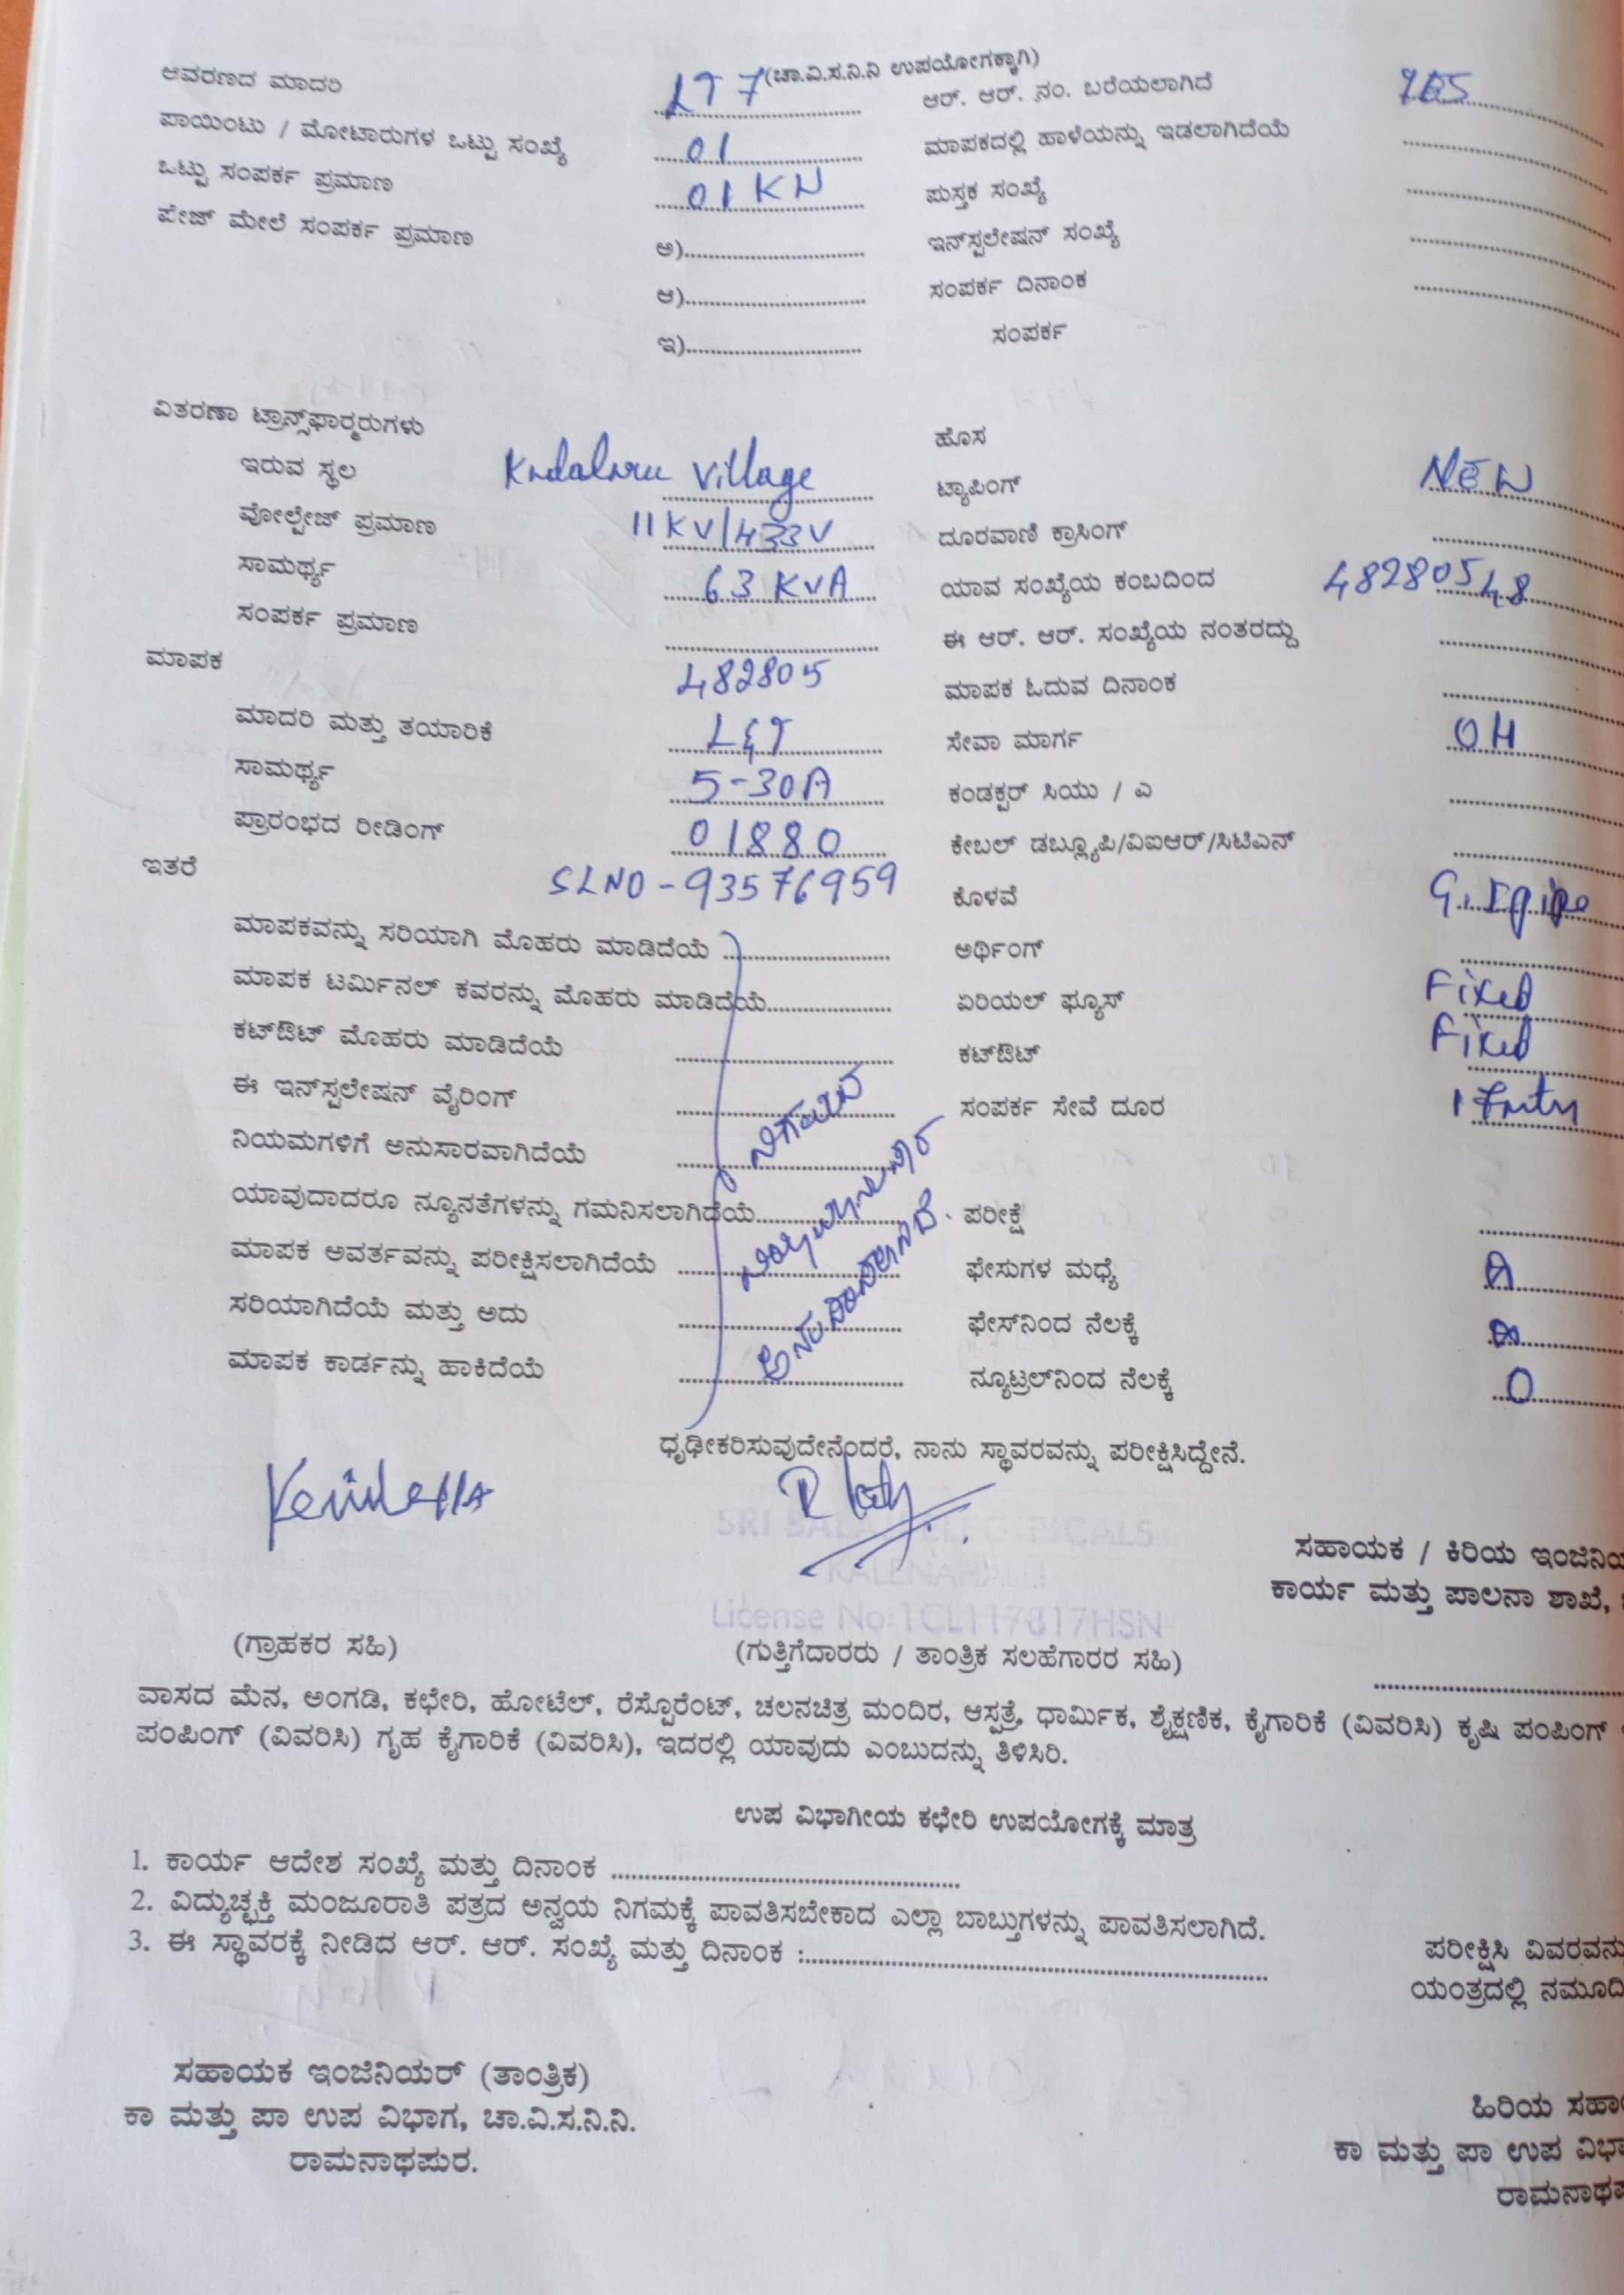 (ಚಾ.ವಿ.ಸ.ನಿ.ನಿ ಉಪಯೋಗಕ್ಕಾಗಿ)
ಆವರಣದ ಮಾದರಿ LT 7 ಆರ್. ಆರ್. ನಂ. ಬರೆಯಲಾಗಿದೆ
ಪಾಯಿಂಟು / ಮೋಟಾರುಗಳ ಒಟ್ಟು ಸಂಖ್ಯೆ 01 ಮಾಪಕದಲ್ಲಿ ಹಾಳೆಯನ್ನು ಇಡಲಾಗಿದೆಯೆ
ಒಟ್ಟು ಸಂಪರ್ಕ ಪ್ರಮಾಣ 01 KW ಪುಸ್ತಕ ಸಂಖ್ಯೆ
ಪೇಜ್ ಮೇಲೆ ಸಂಪರ್ಕ ಪ್ರಮಾಣ ಅ) ಇನ್‌ಸ್ಪಲೇಷನ್ ಸಂಖ್ಯೆ
ಆ) ಸಂಪರ್ಕ ದಿನಾಂಕ
ಇ) ಸಂಪರ್ಕ
ವಿತರಣಾ ಟ್ರಾನ್ಸ್‌ಫಾರ್‍ಮರುಗಳು ಹೊಸ
ಇರುವ ಸ್ಥಲ Village ಟ್ಯಾಪಿಂಗ್ NEW
ವೋಲ್ಟೇಜ್ ಪ್ರಮಾಣ 11KV/433V ದೂರವಾಣಿ ಕ್ರಾಸಿಂಗ್
ಸಾಮರ್ಥ್ಯ 63 KVA ಯಾವ ಸಂಖ್ಯೆಯ ಕಂಬದಿಂದ 48280548
ಸಂಪರ್ಕ ಪ್ರಮಾಣ ಈ ಆರ್. ಆರ್. ಸಂಖ್ಯೆಯ ನಂತರದ್ದು
ಮಾಪಕ 482805 ಮಾಪಕ ಓದುವ ದಿನಾಂಕ
ಮಾದರಿ ಮತ್ತು ತಯಾರಿಕೆ L&T ಸೇವಾ ಮಾರ್ಗ OH
ಸಾಮರ್ಥ್ಯ 5-30A ಕಂಡಕ್ಟರ್ ಸಿಯು / ಎ
ಪ್ರಾರಂಭದ ರೀಡಿಂಗ್ 01880 ಕೇಬಲ್ ಡಬ್ಲ್ಯೂಪಿ/ವಿಐಆರ್/ಸಿಟಿಎನ್
ಇತರೆ SLNO - 93576959 ಕೊಳವೆ G.I pipe
ಮಾಪಕವನ್ನು ಸರಿಯಾಗಿ ಮೊಹರು ಮಾಡಿದೆಯೆ ಅರ್ಥಿಂಗ್
ಮಾಪಕ ಟರ್ಮಿನಲ್ ಕವರನ್ನು ಮೊಹರು ಮಾಡಿದೆಯೆ ಏರಿಯಲ್ ಫ್ಯೂಸ್ Fixed
ಕಟ್‌ಔಟ್ ಮೊಹರು ಮಾಡಿದೆಯೆ ಕಟ್‌ಔಟ್ Fixed
ಈ ಇನ್‌ಸ್ಪಲೇಷನ್ ವೈರಿಂಗ್ ಸಂಪರ್ಕ ಸೇವೆ ದೂರ
ನಿಯಮಗಳಿಗೆ ಅನುಸಾರವಾಗಿದೆಯೆ
ಯಾವುದಾದರೂ ನ್ಯೂನತೆಗಳನ್ನು ಗಮನಿಸಲಾಗಿದೆಯೆ ಪರೀಕ್ಷೆ
ಮಾಪಕ ಅವರ್ತವನ್ನು ಪರೀಕ್ಷಿಸಲಾಗಿದೆಯೆ ಫೇಸುಗಳ ಮಧ್ಯೆ
ಸರಿಯಾಗಿದೆಯೆ ಮತ್ತು ಅದು ಫೇಸ್‌ನಿಂದ ನೆಲಕ್ಕೆ
ಮಾಪಕ ಕಾರ್ಡನ್ನು ಹಾಕಿದೆಯೆ ನ್ಯೂಟ್ರಲ್‌ನಿಂದ ನೆಲಕ್ಕೆ 0
ಧೃಢೀಕರಿಸುವುದೇನೆಂದರೆ, ನಾನು ಸ್ಥಾವರವನ್ನು ಪರೀಕ್ಷಿಸಿದ್ದೇನೆ.
ಸಹಾಯಕ / ಕಿರಿಯ
ಕಾರ್ಯ ಮತ್ತು ಪಾಲನಾ ಶಾಖೆ,
License No:1CL117817HSN
(ಗ್ರಾಹಕರ ಸಹಿ) (ಗುತ್ತಿಗೆದಾರರು / ತಾಂತ್ರಿಕ ಸಲಹೆಗಾರರ ಸಹಿ)
ವಾಸದ ಮೆನ, ಅಂಗಡಿ, ಕಛೇರಿ, ಹೋಟೆಲ್, ರೆಸ್ಟೊರೆಂಟ್, ಚಲನಚಿತ್ರ ಮಂದಿರ, ಆಸ್ಪತ್ರೆ, ಧಾರ್ಮಿಕ, ಶೈಕ್ಷಣಿಕ, ಕೈಗಾರಿಕೆ (ವಿವರಿಸಿ) ಕೃಷಿ ಪಂಪಿಂಗ್
ಪಂಪಿಂಗ್ (ವಿವರಿಸಿ) ಗೃಹ ಕೈಗಾರಿಕೆ (ವಿವರಿಸಿ), ಇದರಲ್ಲಿ ಯಾವುದು ಎಂಬುದನ್ನು ತಿಳಿಸಿರಿ.
ಉಪ ವಿಭಾಗೀಯ ಕಛೇರಿ ಉಪಯೋಗಕ್ಕೆ ಮಾತ್ರ
1. ಕಾರ್ಯ ಆದೇಶ ಸಂಖ್ಯೆ ಮತ್ತು ದಿನಾಂಕ
2. ವಿದ್ಯುಚ್ಛಕ್ತಿ ಮಂಜೂರಾತಿ ಪತ್ರದ ಅನ್ವಯ ನಿಗಮಕ್ಕೆ ಪಾವತಿಸಬೇಕಾದ ಎಲ್ಲಾ ಬಾಬ್ತುಗಳನ್ನು ಪಾವತಿಸಲಾಗಿದೆ.
3. ಈ ಸ್ಥಾವರಕ್ಕೆ ನೀಡಿದ ಆರ್. ಆರ್. ಸಂಖ್ಯೆ ಮತ್ತು ದಿನಾಂಕ :
ಪರೀಕ್ಷಿಸಿ
ಯಂತ್ರದಲ್ಲಿ
ಸಹಾಯಕ ಇಂಜಿನಿಯರ್ (ತಾಂತ್ರಿಕ)
ಕಾ ಮತ್ತು ಪಾ ಉಪ ವಿಭಾಗ, ಚಾ.ವಿ.ಸ.ನಿ.ನಿ.
ರಾಮನಾಥಪುರ.
ಹಿರಿಯ
ಕಾ ಮತ್ತು ಪಾ ಉಪ